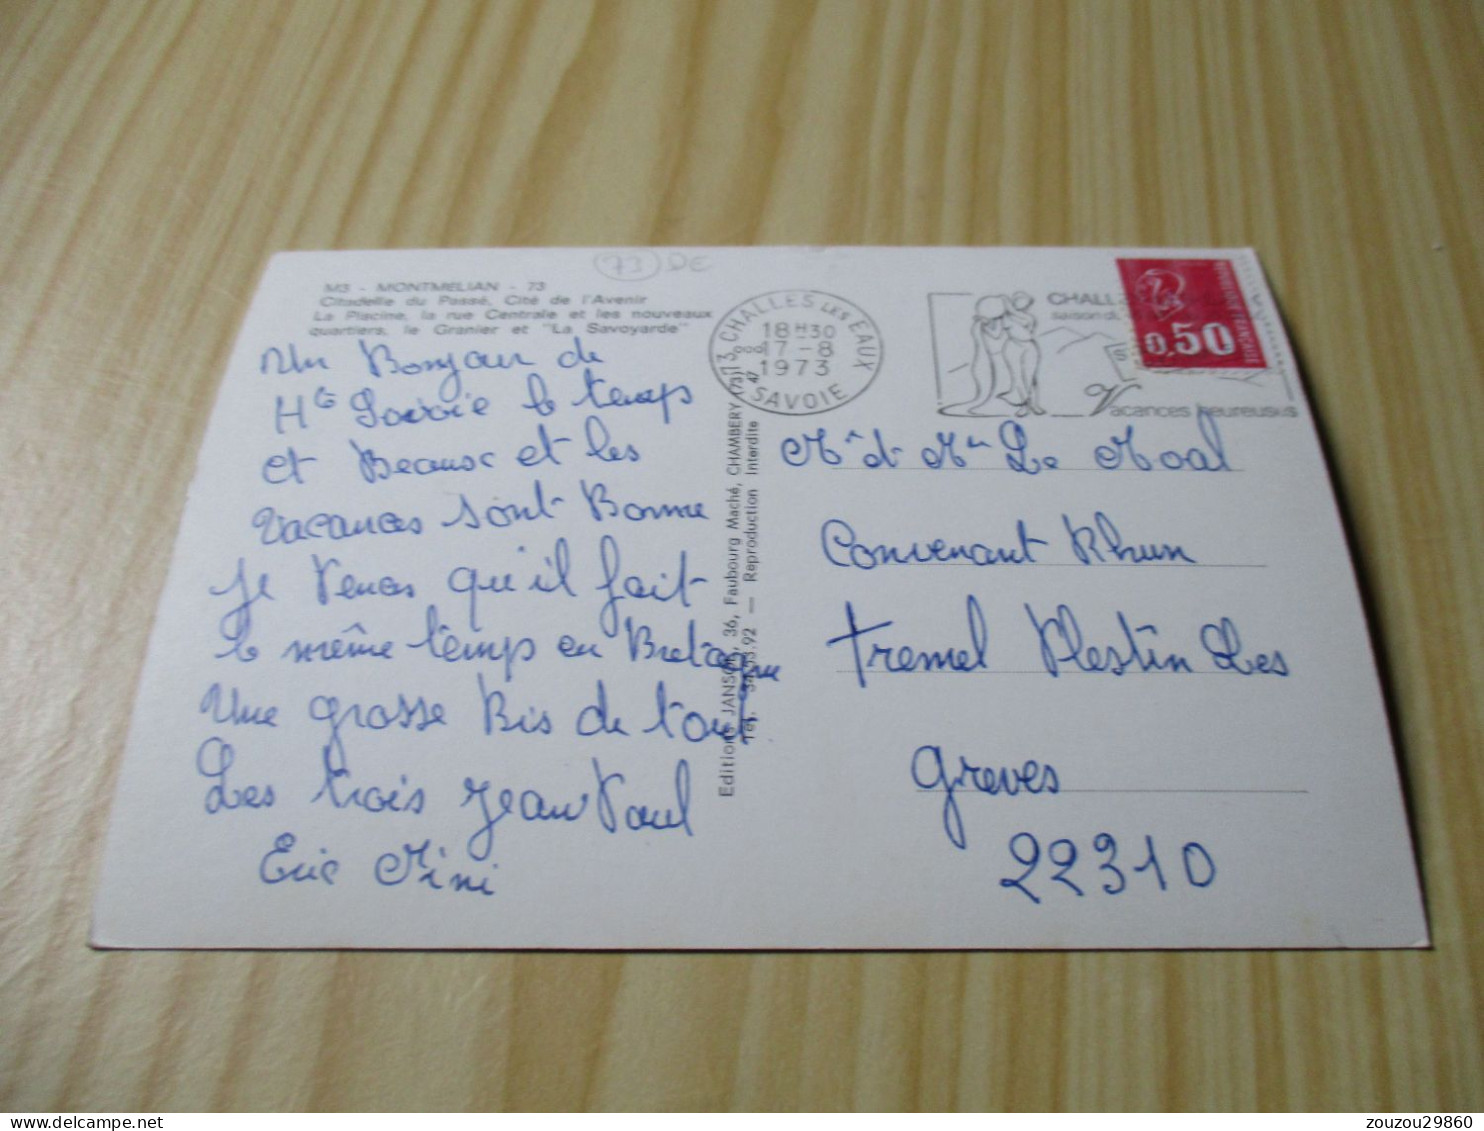 (73) DE
M3 - MONTMELIAN - 73
Citadelle du Passé, Cité de l'Avenir
La Piscine, la rue Centrale et les nouveaux
quartiers, le Granier et "La Savoyarde"
Un Bonjour de
Hte Savoie le temps
et Beause et les
Vacances sont Bonne
je Pences qu'il fait
le même temp en Bretagne
Une grosse Bis de tout
Les trois Jean Paul
Eric Mini
Editions JANSOL, 36, Faubourg Maché, CHAMBERY (73)
Tél. 34.33.92 — Reproduction Interdite
73 CHALLES LES EAUX
18H30
17-8
1973
SAVOIE
CHALL
saison du
Vacances heureuses
0,50
Mr d Me Le Moal
Convenant Rhun
Tremel Plestin Les
Greves
22310
zouzou29860